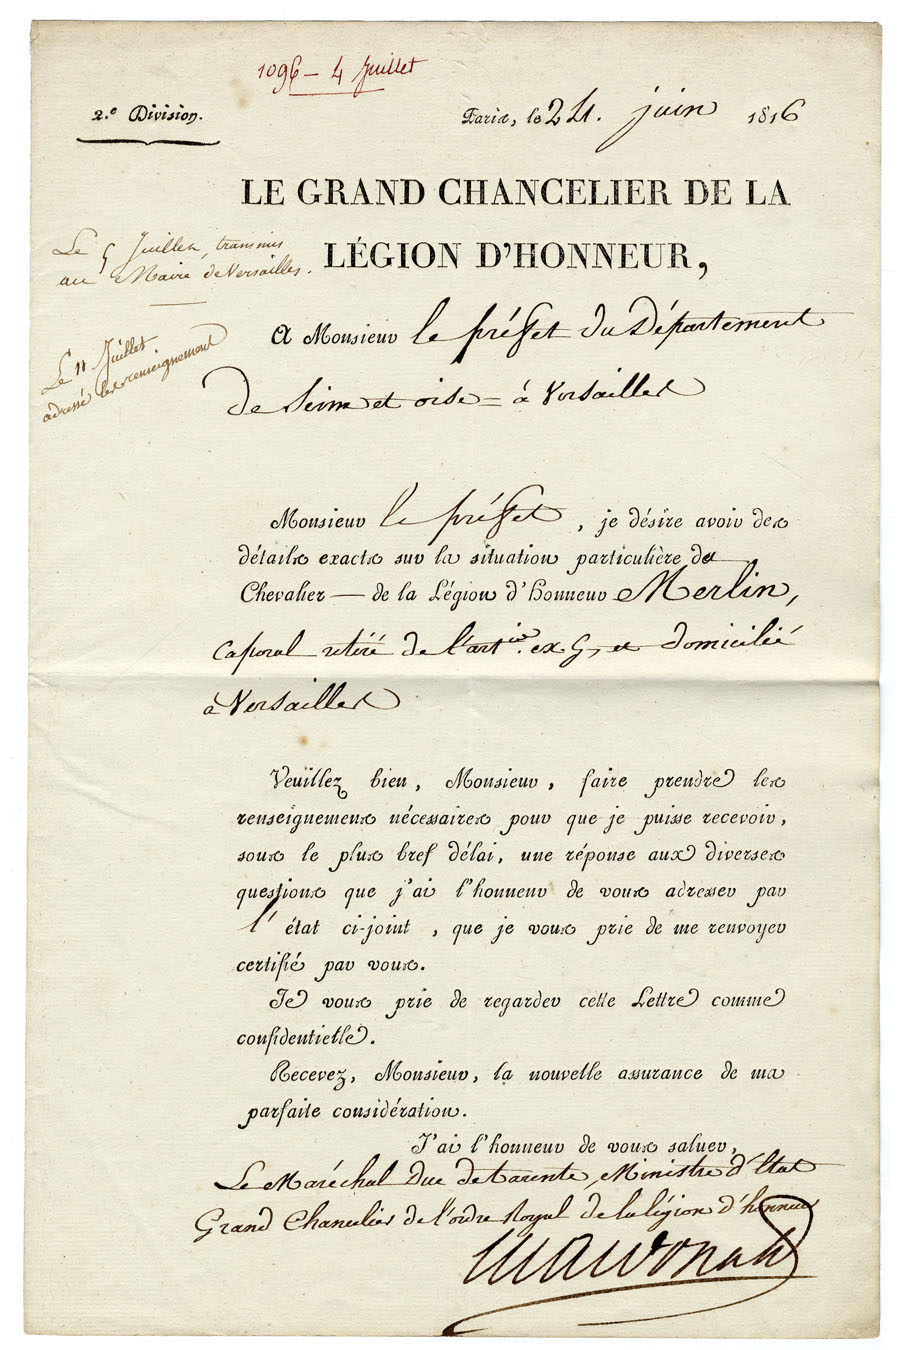 1096 – 4 Juillet
2.e Division.
Paris, le 24. juin 1816
LE GRAND CHANCELIER DE LA
LÉGION D'HONNEUR,
Le 5 Juillet, transmis
au Maire de Versailles.
Le 11 Juillet
adressé les renseignement
A Monsieur le préfet du Département
de Seine et oise = à Versailles
Monsieur le préfet, je désire avoir des
détails exacts sur la situation particulière du
Chevalier — de la Légion d'Honneur Merlin,
Caporal retiré de l'artie. ex G, et domicilié
à Versailles
Veuillez bien, Monsieur, faire prendre les
renseignemens nécessaires pour que je puisse recevoir,
sous le plus bref délai, une réponse aux diverses
questions que j'ai l'honneur de vous adresser par
l' état ci-joint, que je vous prie de me renvoyer
certifié par vous.
Je vous prie de regarder cette Lettre comme
confidentielle.
Recevez, Monsieur, la nouvelle assurance de ma
parfaite considération.
J'ai l'honneur de vous saluer,
Le Maréchal Duc de Tarente, Ministre d'État
Grand Chancelier de l'ordre Royal de la légion d'honneur
Macdonald